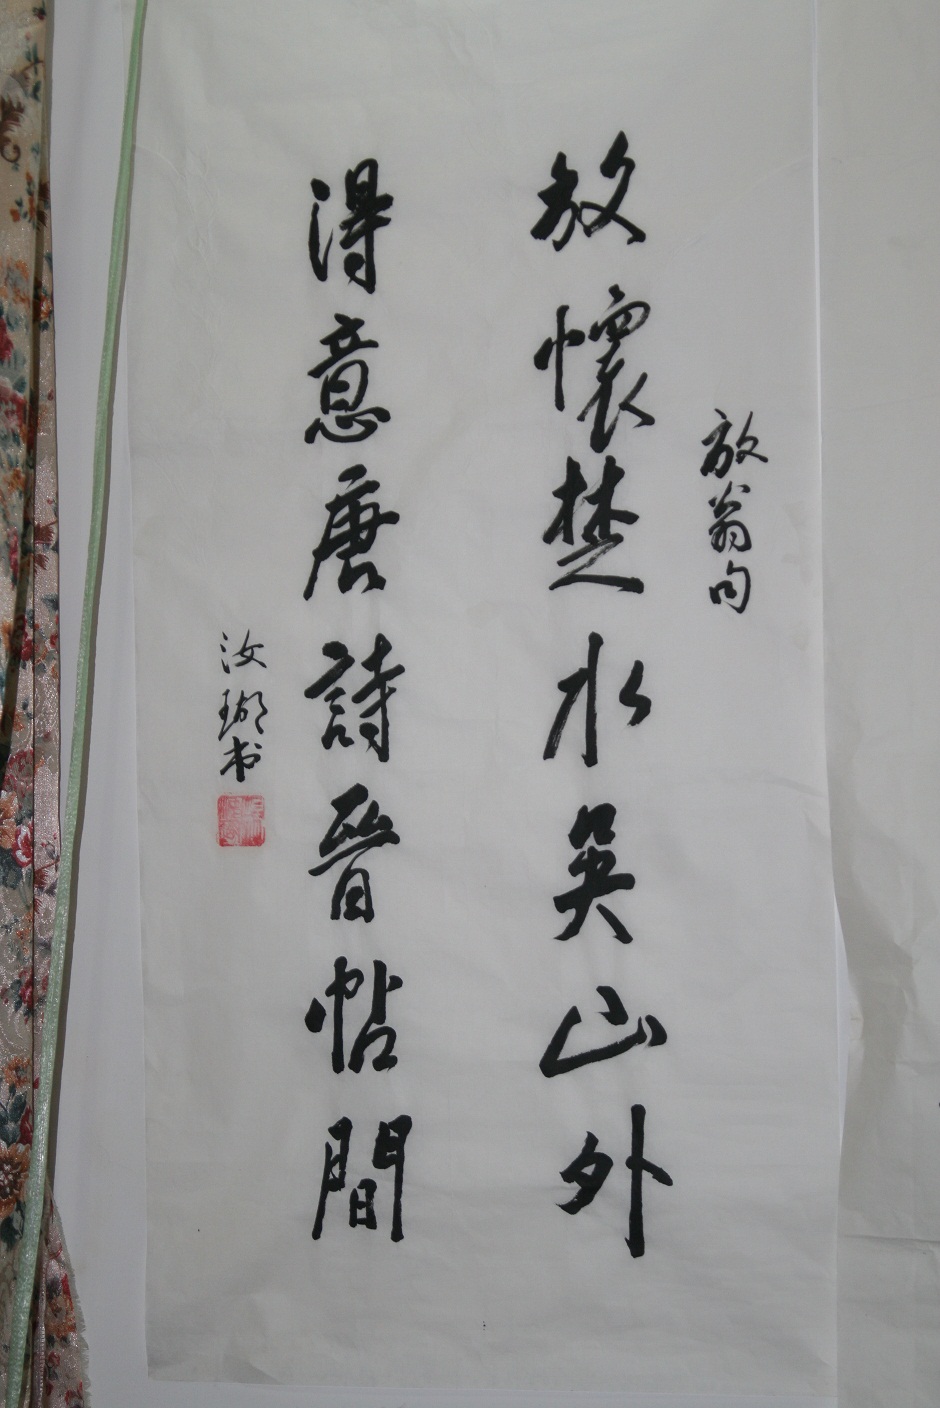 放翁句
放懷楚水吳山外
得意唐詩晉帖間
汝瑚书